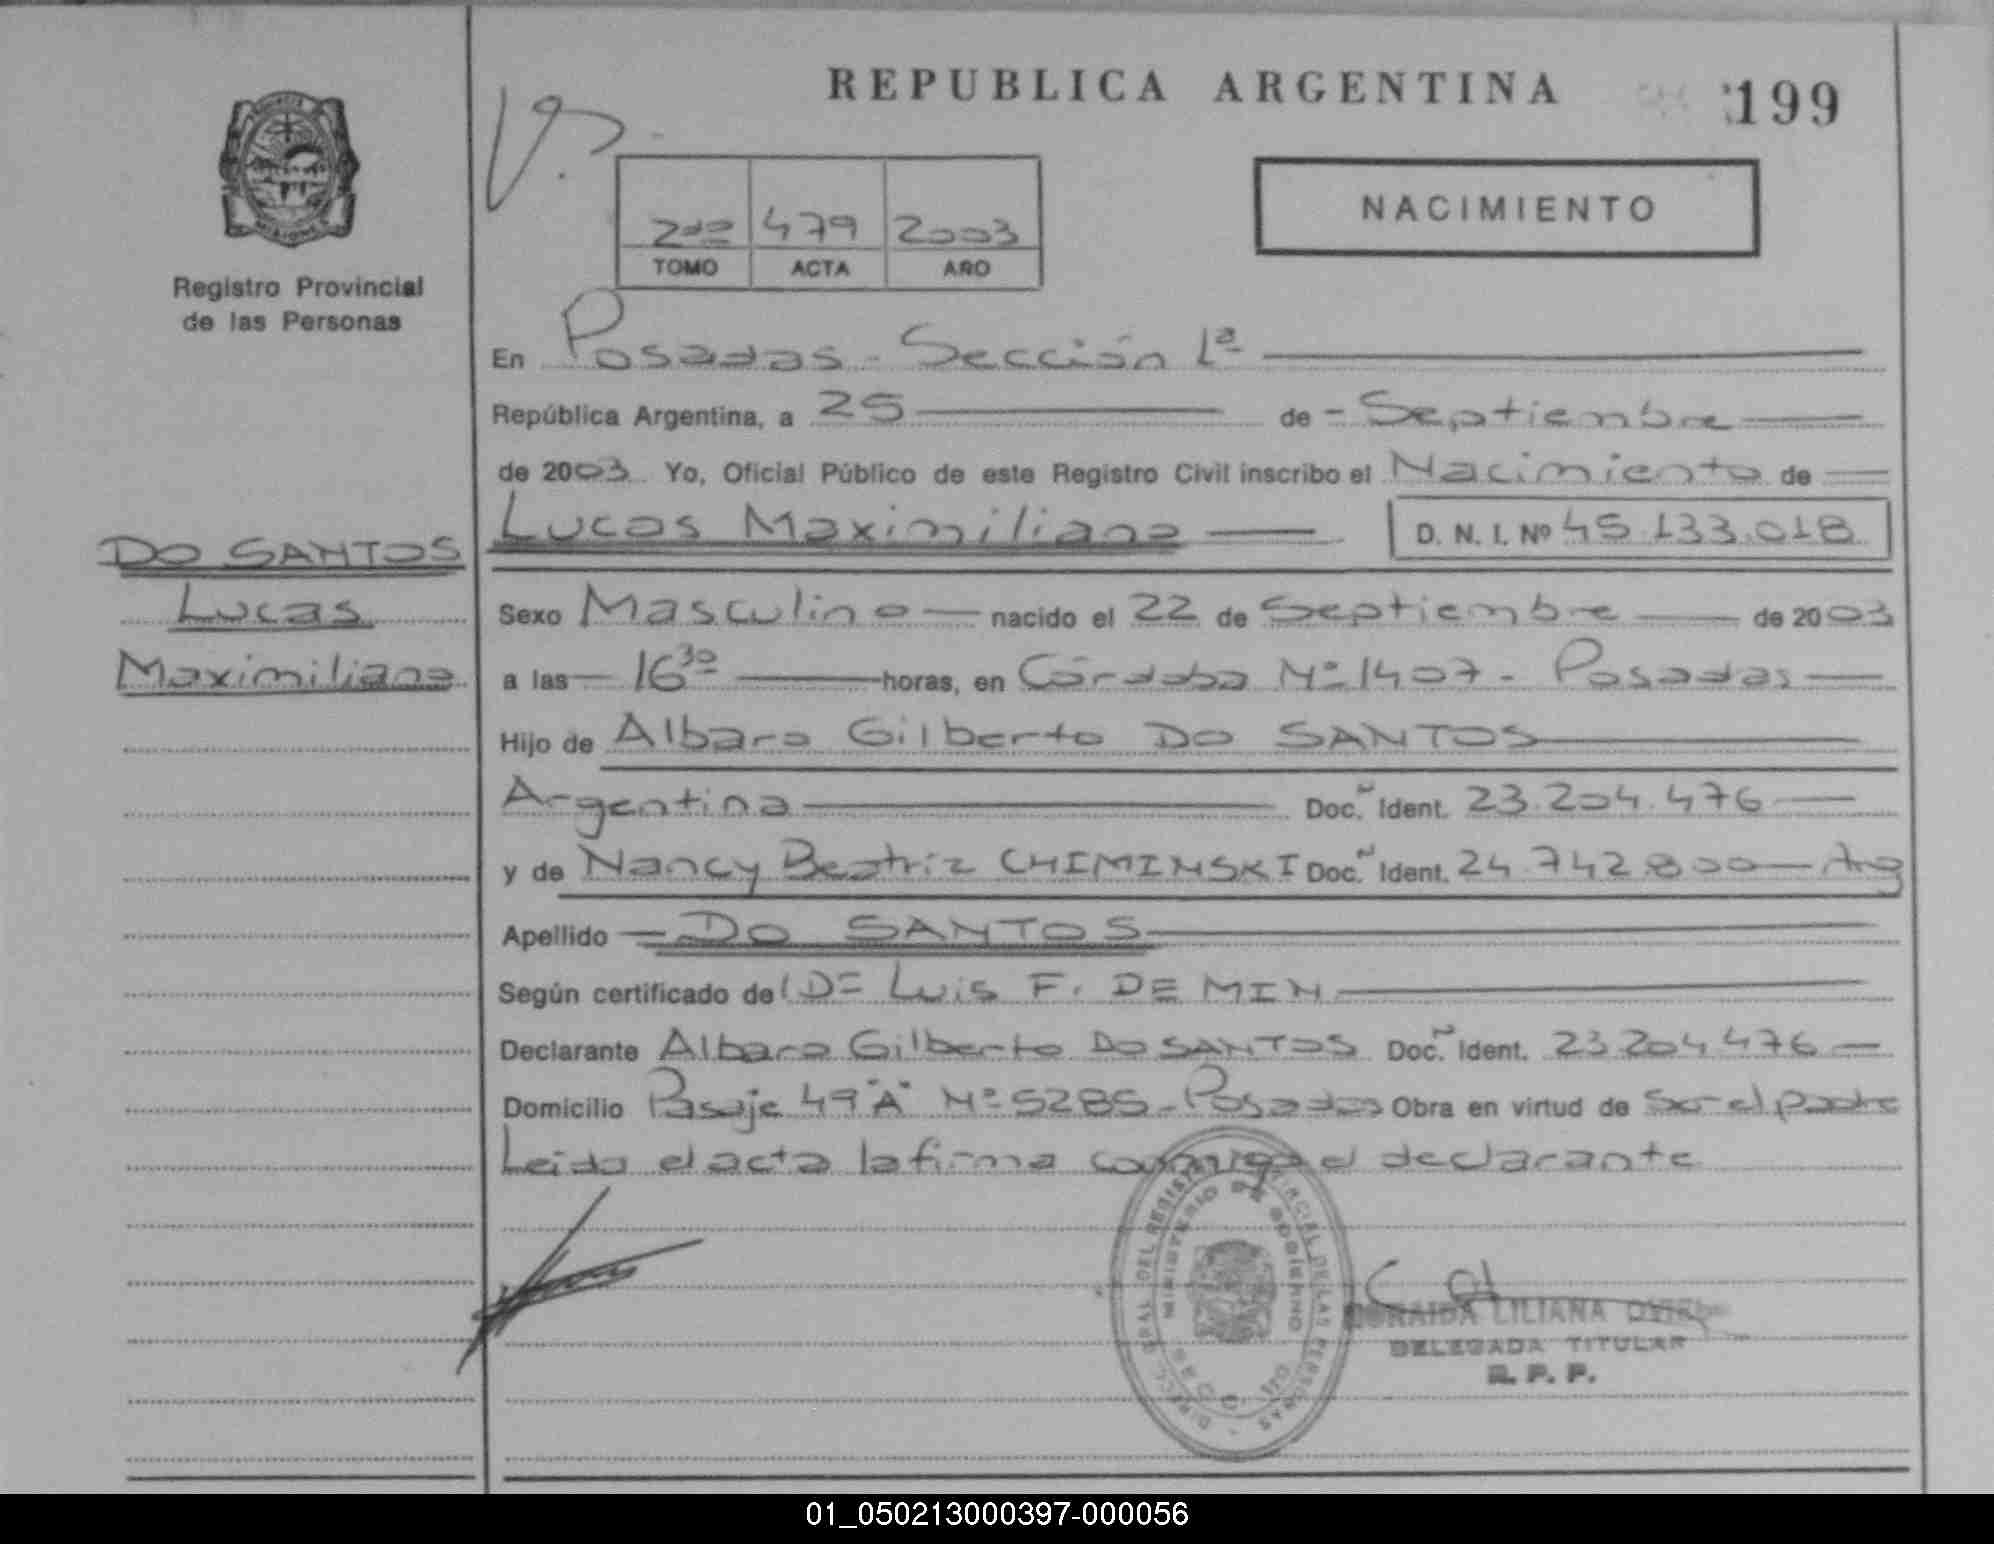 REPUBLICA ARGENTINA
199
NACIMIENTO
2do 479 2003
TOMO ACTA AÑO
Registro Provincial
de las Personas
DO SANTOS
Lucas
Maximiliano
En Posadas - Sección 1ª
República Argentina, a 25 de Septiembre
de 2003 Yo, Oficial Público de este Registro Civil inscribo el Nacimiento de
Lucas Maximiliano D. N. I. Nº 45.133.018
Sexo Masculino nacido el 22 de Septiembre de 2003
a las 16³⁰ horas, en Córdoba Nº 1407 - Posadas
Hijo de Albaro Gilberto DO SANTOS
Argentina Doc. Ident. 23.204.476
y de Nancy Beatriz CHIMINSKI Doc. Ident. 24.742.800 Arg
Apellido DO SANTOS
Según certificado de Luis F. DE MIN
Declarante Albaro Gilberto DO SANTOS Doc. Ident. 23.204.476
Domicilio Pasaje 49"A" Nº 5285 - Posadas Obra en virtud de ser el padre
Leida el acta la firma conmigo el declarante
LILIANA
DELEGADA TITULAR
R. P. P.
01_050213000397-000056